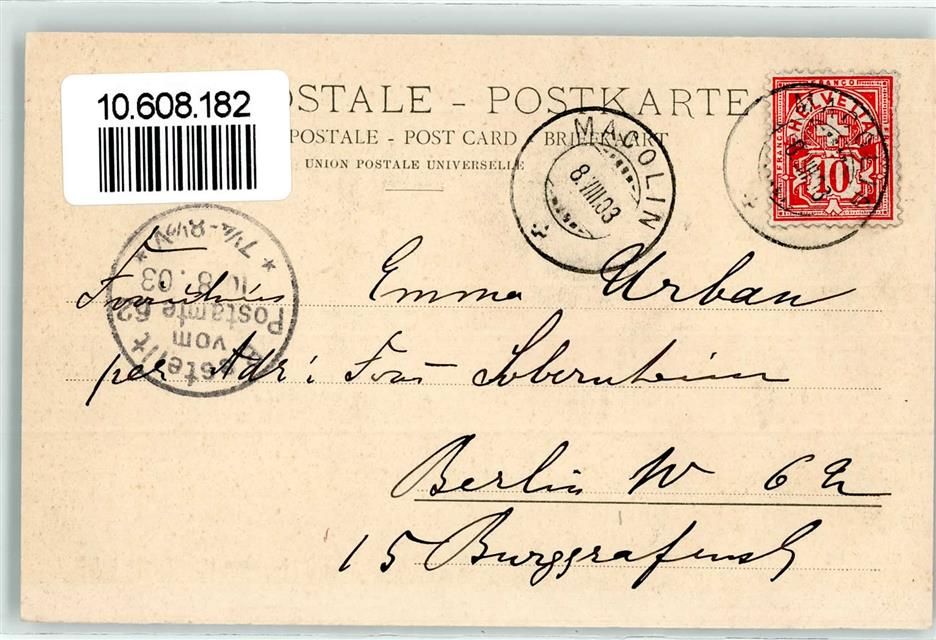 10.608.182
OSTALE - POSTKARTE
POSTALE - POST CARD - BRIEFKAART
UNION POSTALE UNIVERSELLE
MACOLIN
8.VIII.03
FRANCO
HELVETIA
10
Bestellt
vom
Postamte 62
10.8.03
7¼-8½V
Fräulein Emma Urban
per Adr: Frau Sobernheim
Berlin W 62
15 Burggrafenstr